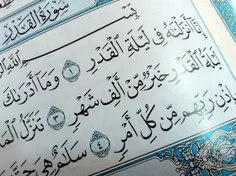 سُورَةُ القَدْرِ
بِسْمِ
إِنَّا أَنزَلْنَٰهُ فِى لَيْلَةِ ٱلْقَدْرِ ١ وَمَآ أَدْرَىٰكَ
لَيْلَةُ ٱلْقَدْرِ خَيْرٌ مِّنْ أَلْفِ شَهْرٍ ٣ تَنَزَّلُ
بِإِذْنِ رَبِّهِم مِّن كُلِّ أَمْرٍ ٤ سَلَٰمٌ هِىَ حَتَّىٰ